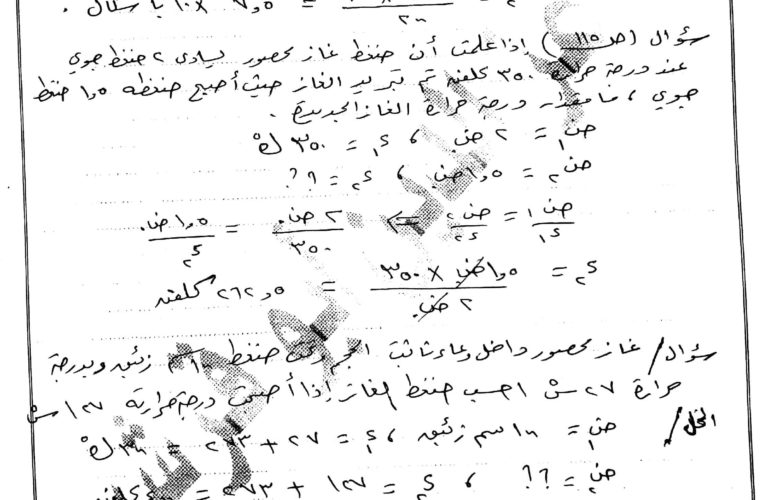 سؤال (ص ١١٥) إذا علمت أن ضغط غاز محصور يساوي ٢ ضغط جوي
عند درجة حرارة ٣٥٠ كلفن تم تبريد الغاز حيث أصبح ضغطه ١,٥ ضغط
جوي ، فما مقدار درجة حرارة الغاز الجديدة .
ض١ = ٢ ض. ، ء١ = ٣٥٠ ك°
ض٢ = ١,٥ ض. ، ء٢ = ؟؟
ض١/ء١ = ض٢/ء٢ ⇐ ٢ ض./٣٥٠ = ١,٥ ض./ء٢
ء٢ = ١,٥ ض. × ٣٥٠/٢ ض. = ٢٦٢,٥ كلفن
سؤال / غاز محصور داخل وعاء ثابت الحجم تحت ضغط سم زئبق وبدرجة
حرارة ٢٧ س احسب ضغط الغاز إذا أصبحت درجة حرارته ١٢٧ س
الحل /
ض١ = سم زئبق ، ء١ = ٢٧ + ٢٧٣ = ٣٠٠ ك°
ض٢ = ؟؟ ، ء٢ = ١٢٧ + ٢٧٣ =